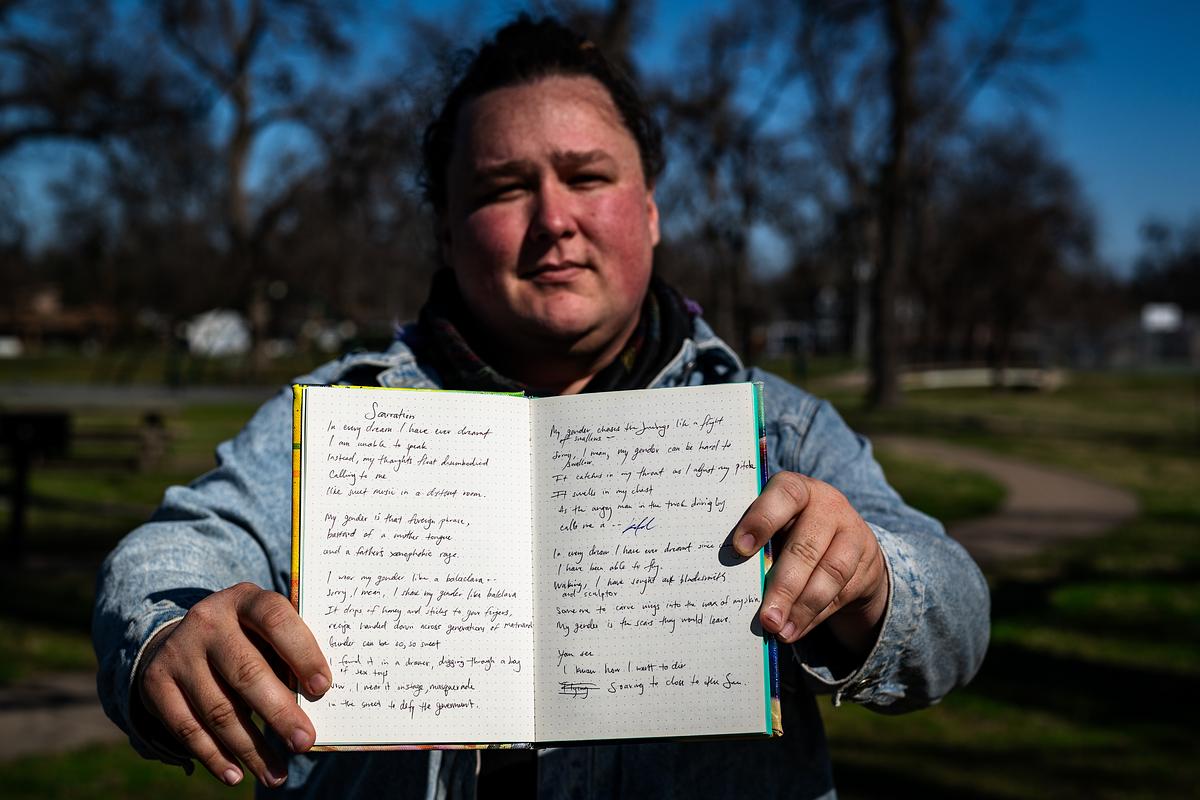 In every dream I have ever dreamt
I am unable to speak
Instead, my thoughts float disembodied
Calling to me
like sweet music in a distant room.
My gender is that foreign phrase,
bastard of a mother tongue
and a father's xenophobic rage.
I wear my gender like a balaclava --
Sorry, I mean, I share my gender like baklava
It drips of honey and sticks to your fingers,
recipe handed down across generations of
Gender can be so, so sweet
I found it in a drawer, digging through a bag
of sex toys
Now, I wear it onstage, masquerade
in the street to defy the government.
My gender chases the like a flight
of swallows --
Sorry, I mean, my gender can be hard to
swallow.
It catches in my throat as I adjust my pitch
It swells in my chest
As the angry man in the truck driving by
calls me a --
In every dream I have ever dreamt since
I have been able to fly.
Waking, I have sought out bladesmiths
and sculptor
Someone to carve wings into the wax of my skin
My gender is the scars they would leave.
You see
I know how I want to die
Flying Soaring to close to the Sun.